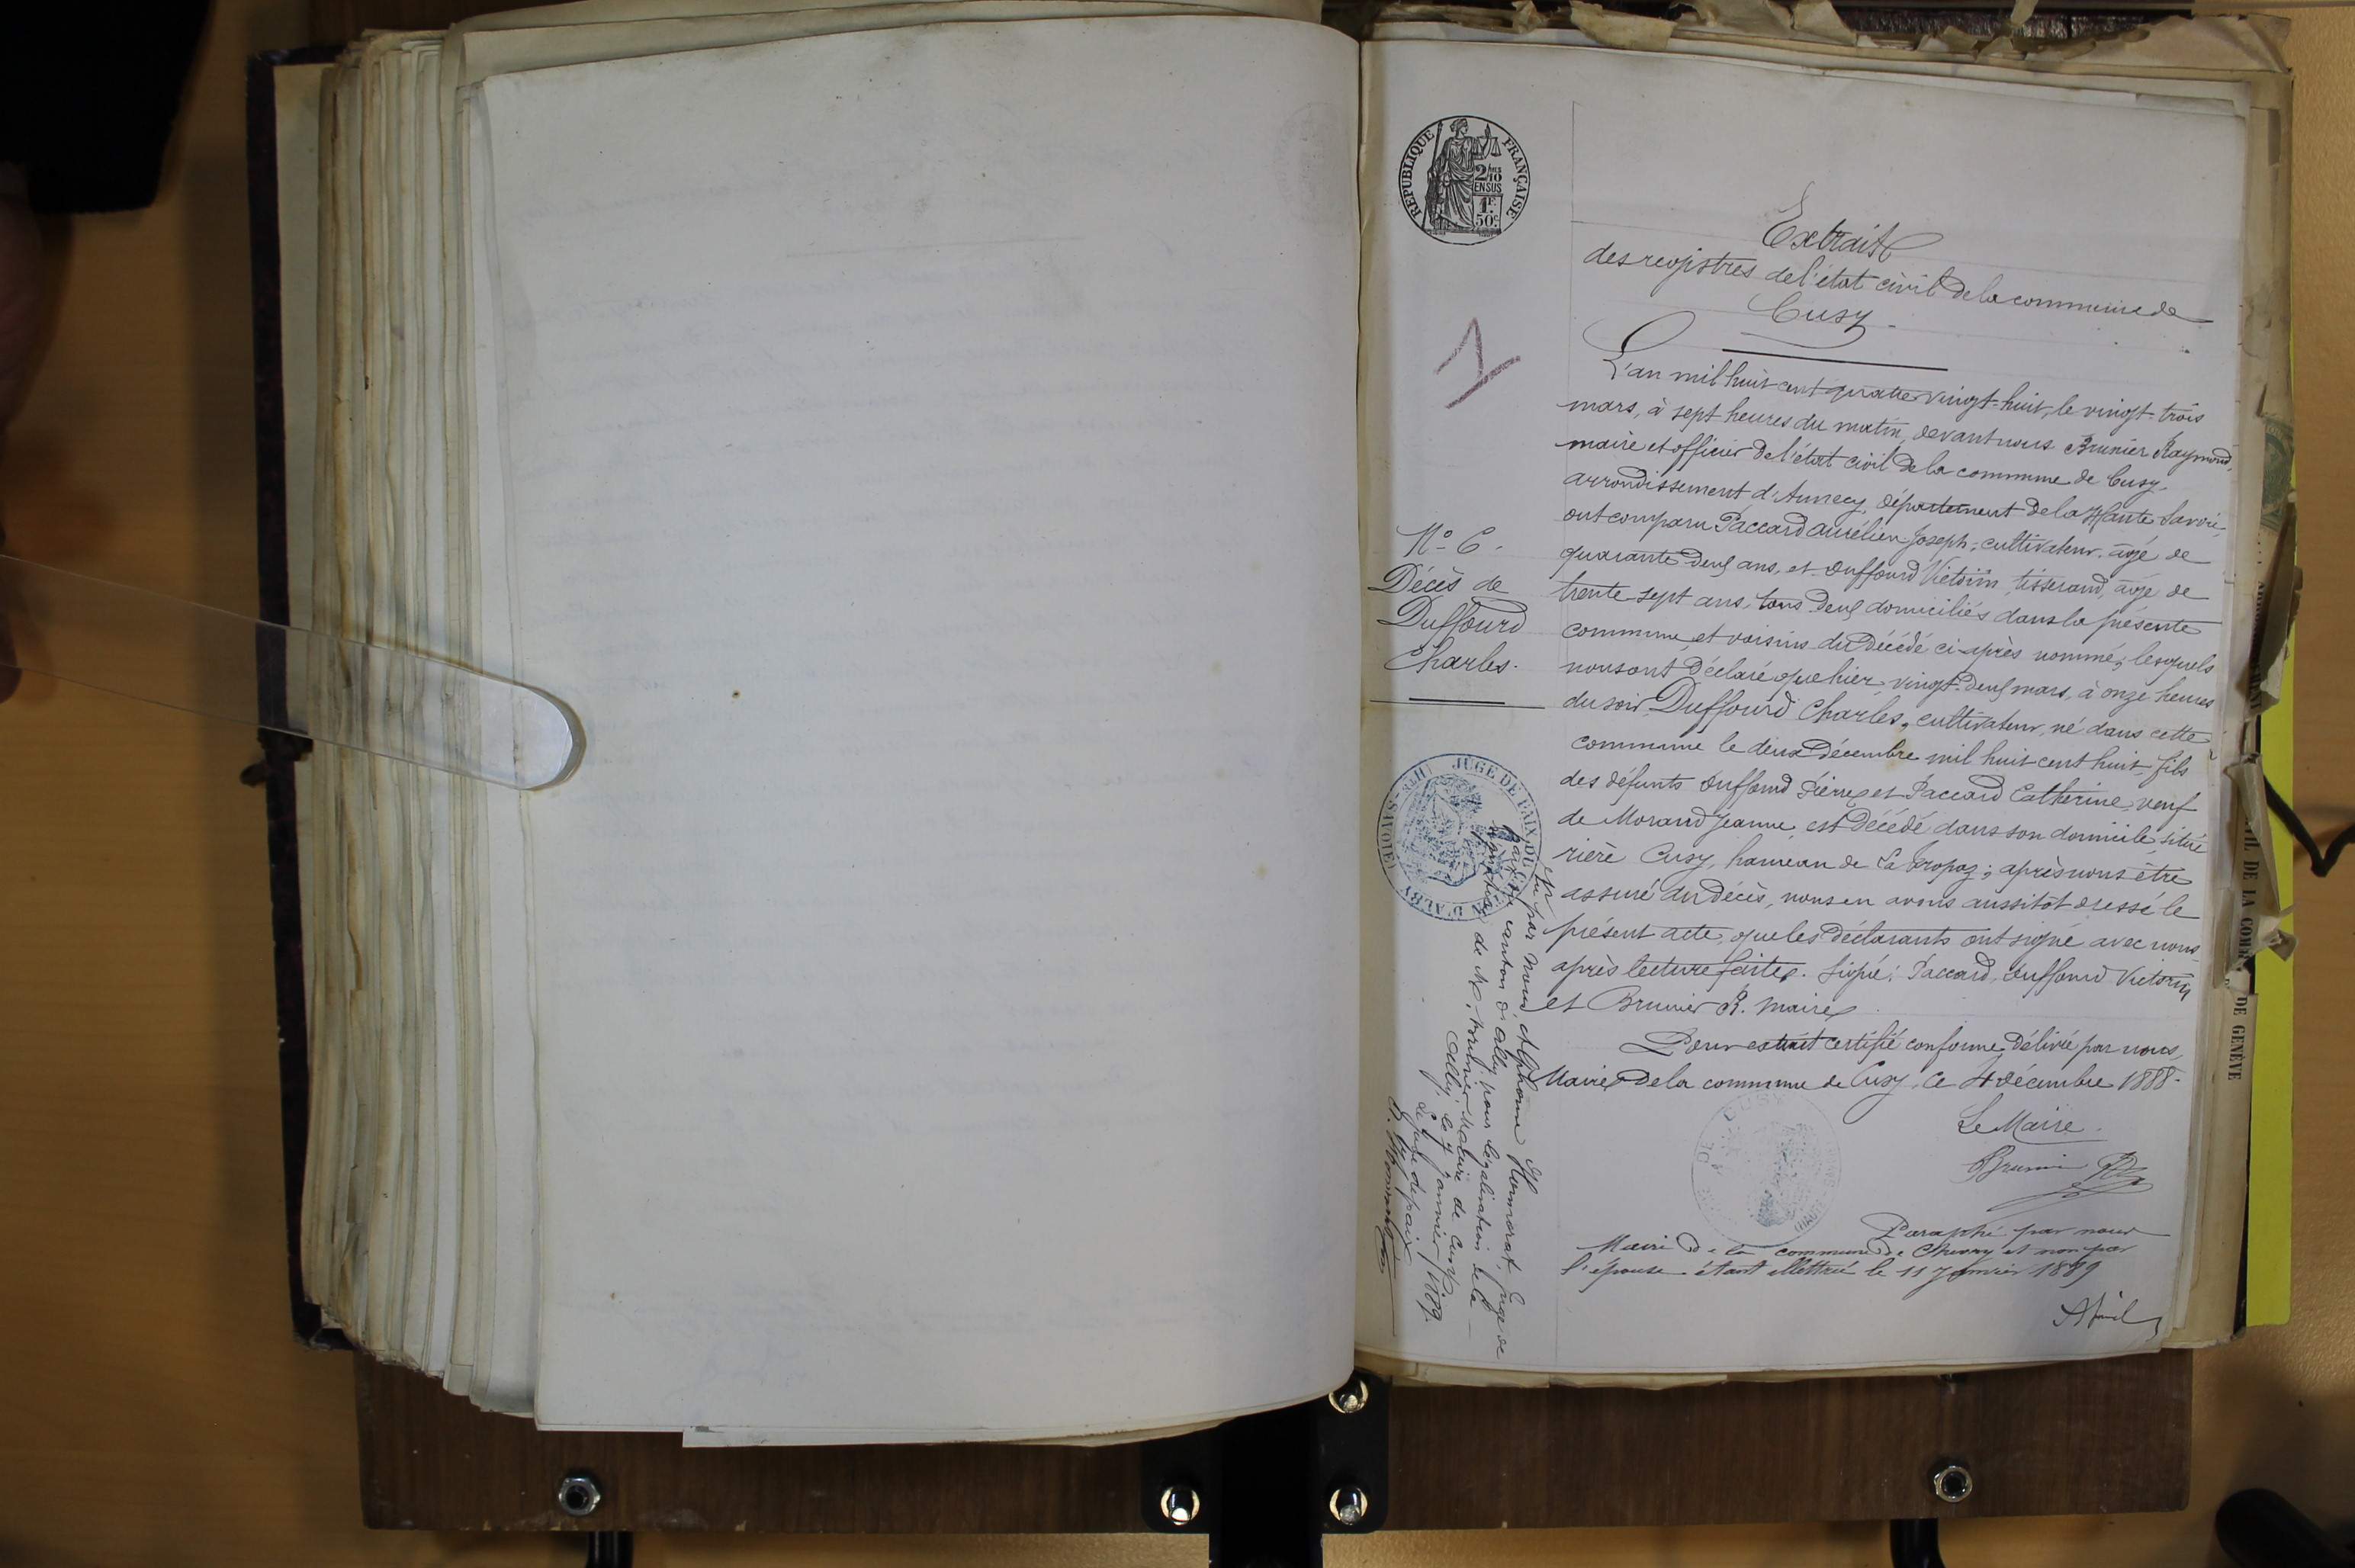 RÉPUBLIQUE FRANÇAISE
2/10 EN SUS
1F. 50c.
Extrait
des registres de l'état civil de la commune de
Cusy.
L'an mil huit cent quatre vingt-huit, le vingt-trois
mars, à sept heures du matin, devant nous Brunier Raymond,
maire et officier de l'état civil de la commune de Cusy,
arrondissement d'Annecy, département de la Haute Savoie,
ont comparu Paccard Aurélien Joseph, cultivateur, âgé de
quarante deux ans, et Duffourd Victorin, tisserand, âgé de
trente sept ans, tous deux domiciliés dans la présente
commune, et voisins du décédé ci-après nommé; lesquels
nous ont déclaré que hier, vingt-deux mars, à onze heures
du soir, Duffourd Charles, cultivateur, né dans cette
commune le deux Décembre mil huit cent huit, fils
des défunts Duffourd Pierre et Paccard Catherine, veuf
de Morand Jeanne, est décédé dans son domicile, situé
rière Cusy, hameau de La Propaz; après nous être
assuré du décès, nous en avons aussitôt dressé le
présent acte, que les déclarants ont signé avec nous
après lecture faite. Signé: Paccard, Duffourd Victorin
et Brunier R. maire
Pour extrait certifié conforme, délivré par nous,
Maire de la commune de Cusy, ce 4 décembre 1888.
Le Maire.
Brunier R
Paraphé par nous
Maire de la commune de Chevry et non par
l'épouse étant illettrée le 11 Janvier 1889
N° 6.
Décès de
Duffourd
Charles.
JUGE DE PAIX DU CANTON D'ALBY (HTE-SAVOIE)
Vu par Nous Alphonse juge de
paix du canton d'Alby, pour légalisation de la
de Mr. Brunier Maire de Cusy.
Alby, le 7 janvier 1889.
Le juge de paix
CUSY
DE LA COM
DE GENÈVE